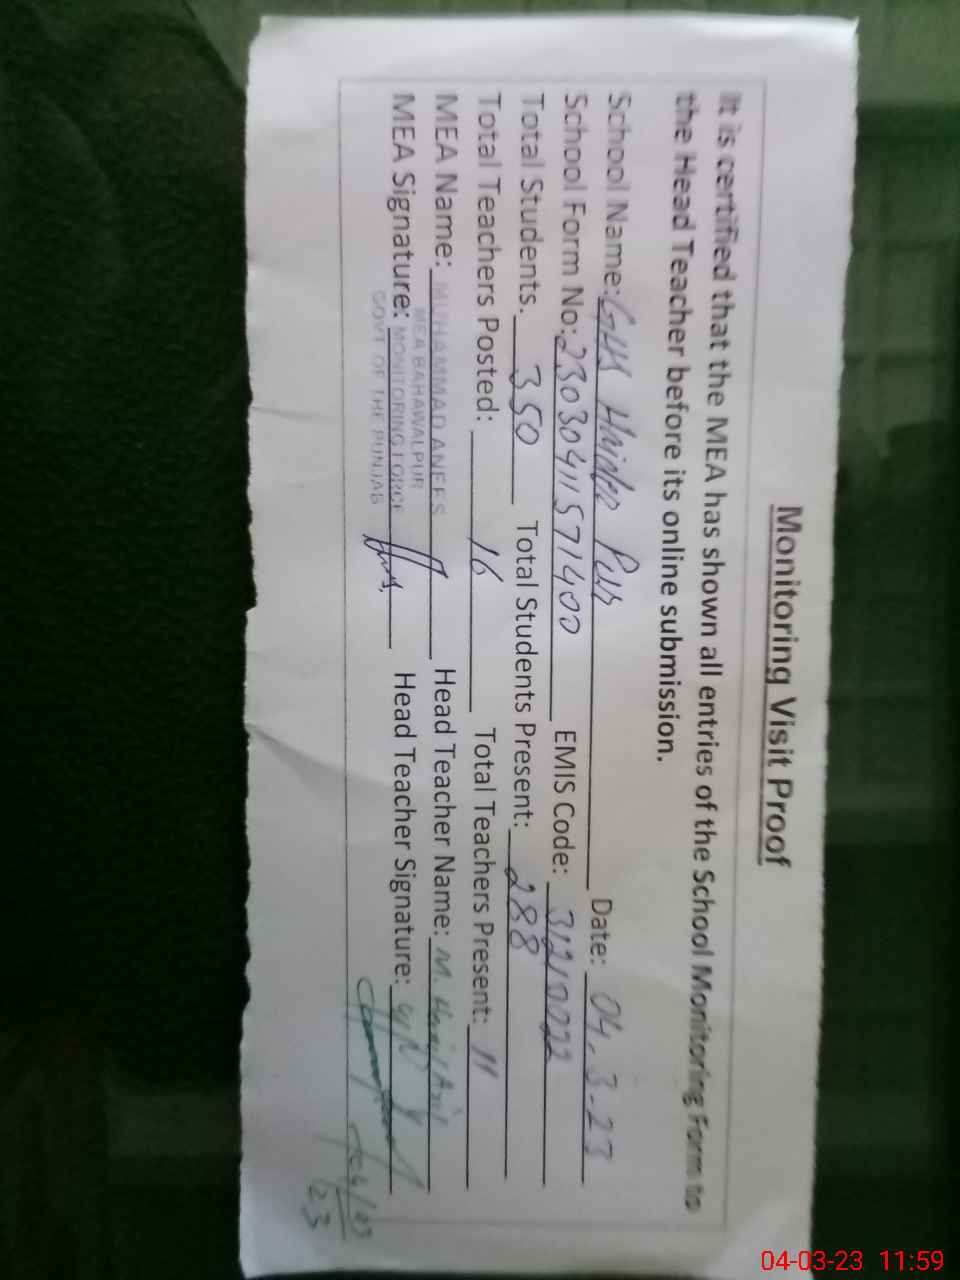 Monitoring Visit Proof
It is certified that the MEA has shown all entries of the School Monitoring Form to
the Head Teacher before its online submission.
School Name: GHS Date: 04-3-23
School Form No: 23030411571400 EMIS Code: 31210022
Total Students. 350 Total Students Present: 288
Total Teachers Posted: 16 Total Teachers Present: 11
MEA Name: MUHAMMAD ANEES Head Teacher Name: M.
MEA BAHAWALPUR
MEA Signature: MONITORING FORCE Head Teacher Signature:
GOVT OF THE PUNJAB
04-03-23 11:59